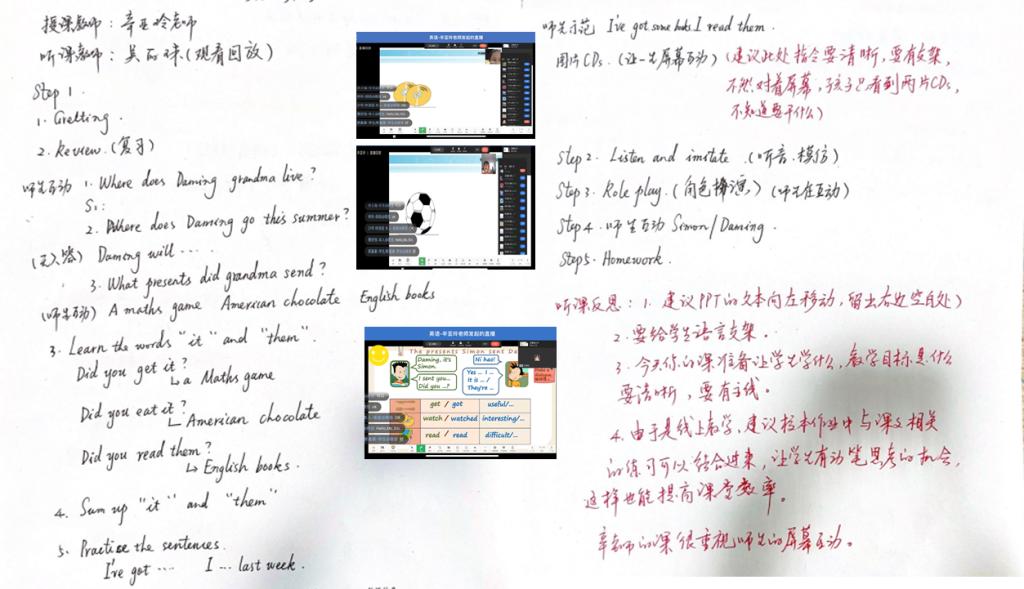 授课教师：辛亚玲老师
听课教师：吴丽咪（观看回放）
Step 1.
1. Gretting.
2. Review.（复习）
师生互动 1. Where does Daming grandma live?
S1:
2. Where does Daming go this summer?
Daming will ....
3. What presents did grandma send?
（师生互动） A maths game American chocolate English books
3. Learn the words "it" and "them".
Did you get it?
↳ a Maths game
Did you eat it?
↳ American chocolate
Did you read them?
↳ English books.
4. Sum up "it" and "them"
5. Practice the sentences.
I've got .... I ... last week.
英语-辛亚玲老师发起的直播
英语-辛亚玲老师发起的直播
The presents Simon sent Da
Daming, it's Simon.
I sent you... Did you ...?
Ni hao!
Yes ... I ... It is ... / They're ...
get / got useful/...
watch / watched interesting/...
read / read difficult/...
师生示范 I've got some books I read them.
图片CDs.（让一生屏幕互动）（建议此处指令要清晰，要有支架，
不然对着屏幕，孩子只看到两片CDs，
不知道要干什么）
Step 2. Listen and imitate.（听音、模仿）
Step 3. Role play.（角色扮演）（师生在互动）
Step 4. 师生互动 Simon/Daming.
Step 5. Homework.
听课反思：1. 建议PPT的文本向左移动，留出右边空白处）
2. 要给学生语言支架。
3. 今天你的课准备让学生学什么，教学目标是什么
要清晰，要有主线。
4. 由于是线上教学，建议校本作业中与课文相关
的练习可以结合进来，让学生有动笔思考的机会，
这样也能提高课堂效率。
辛老师的课很重视师生的屏幕互动。